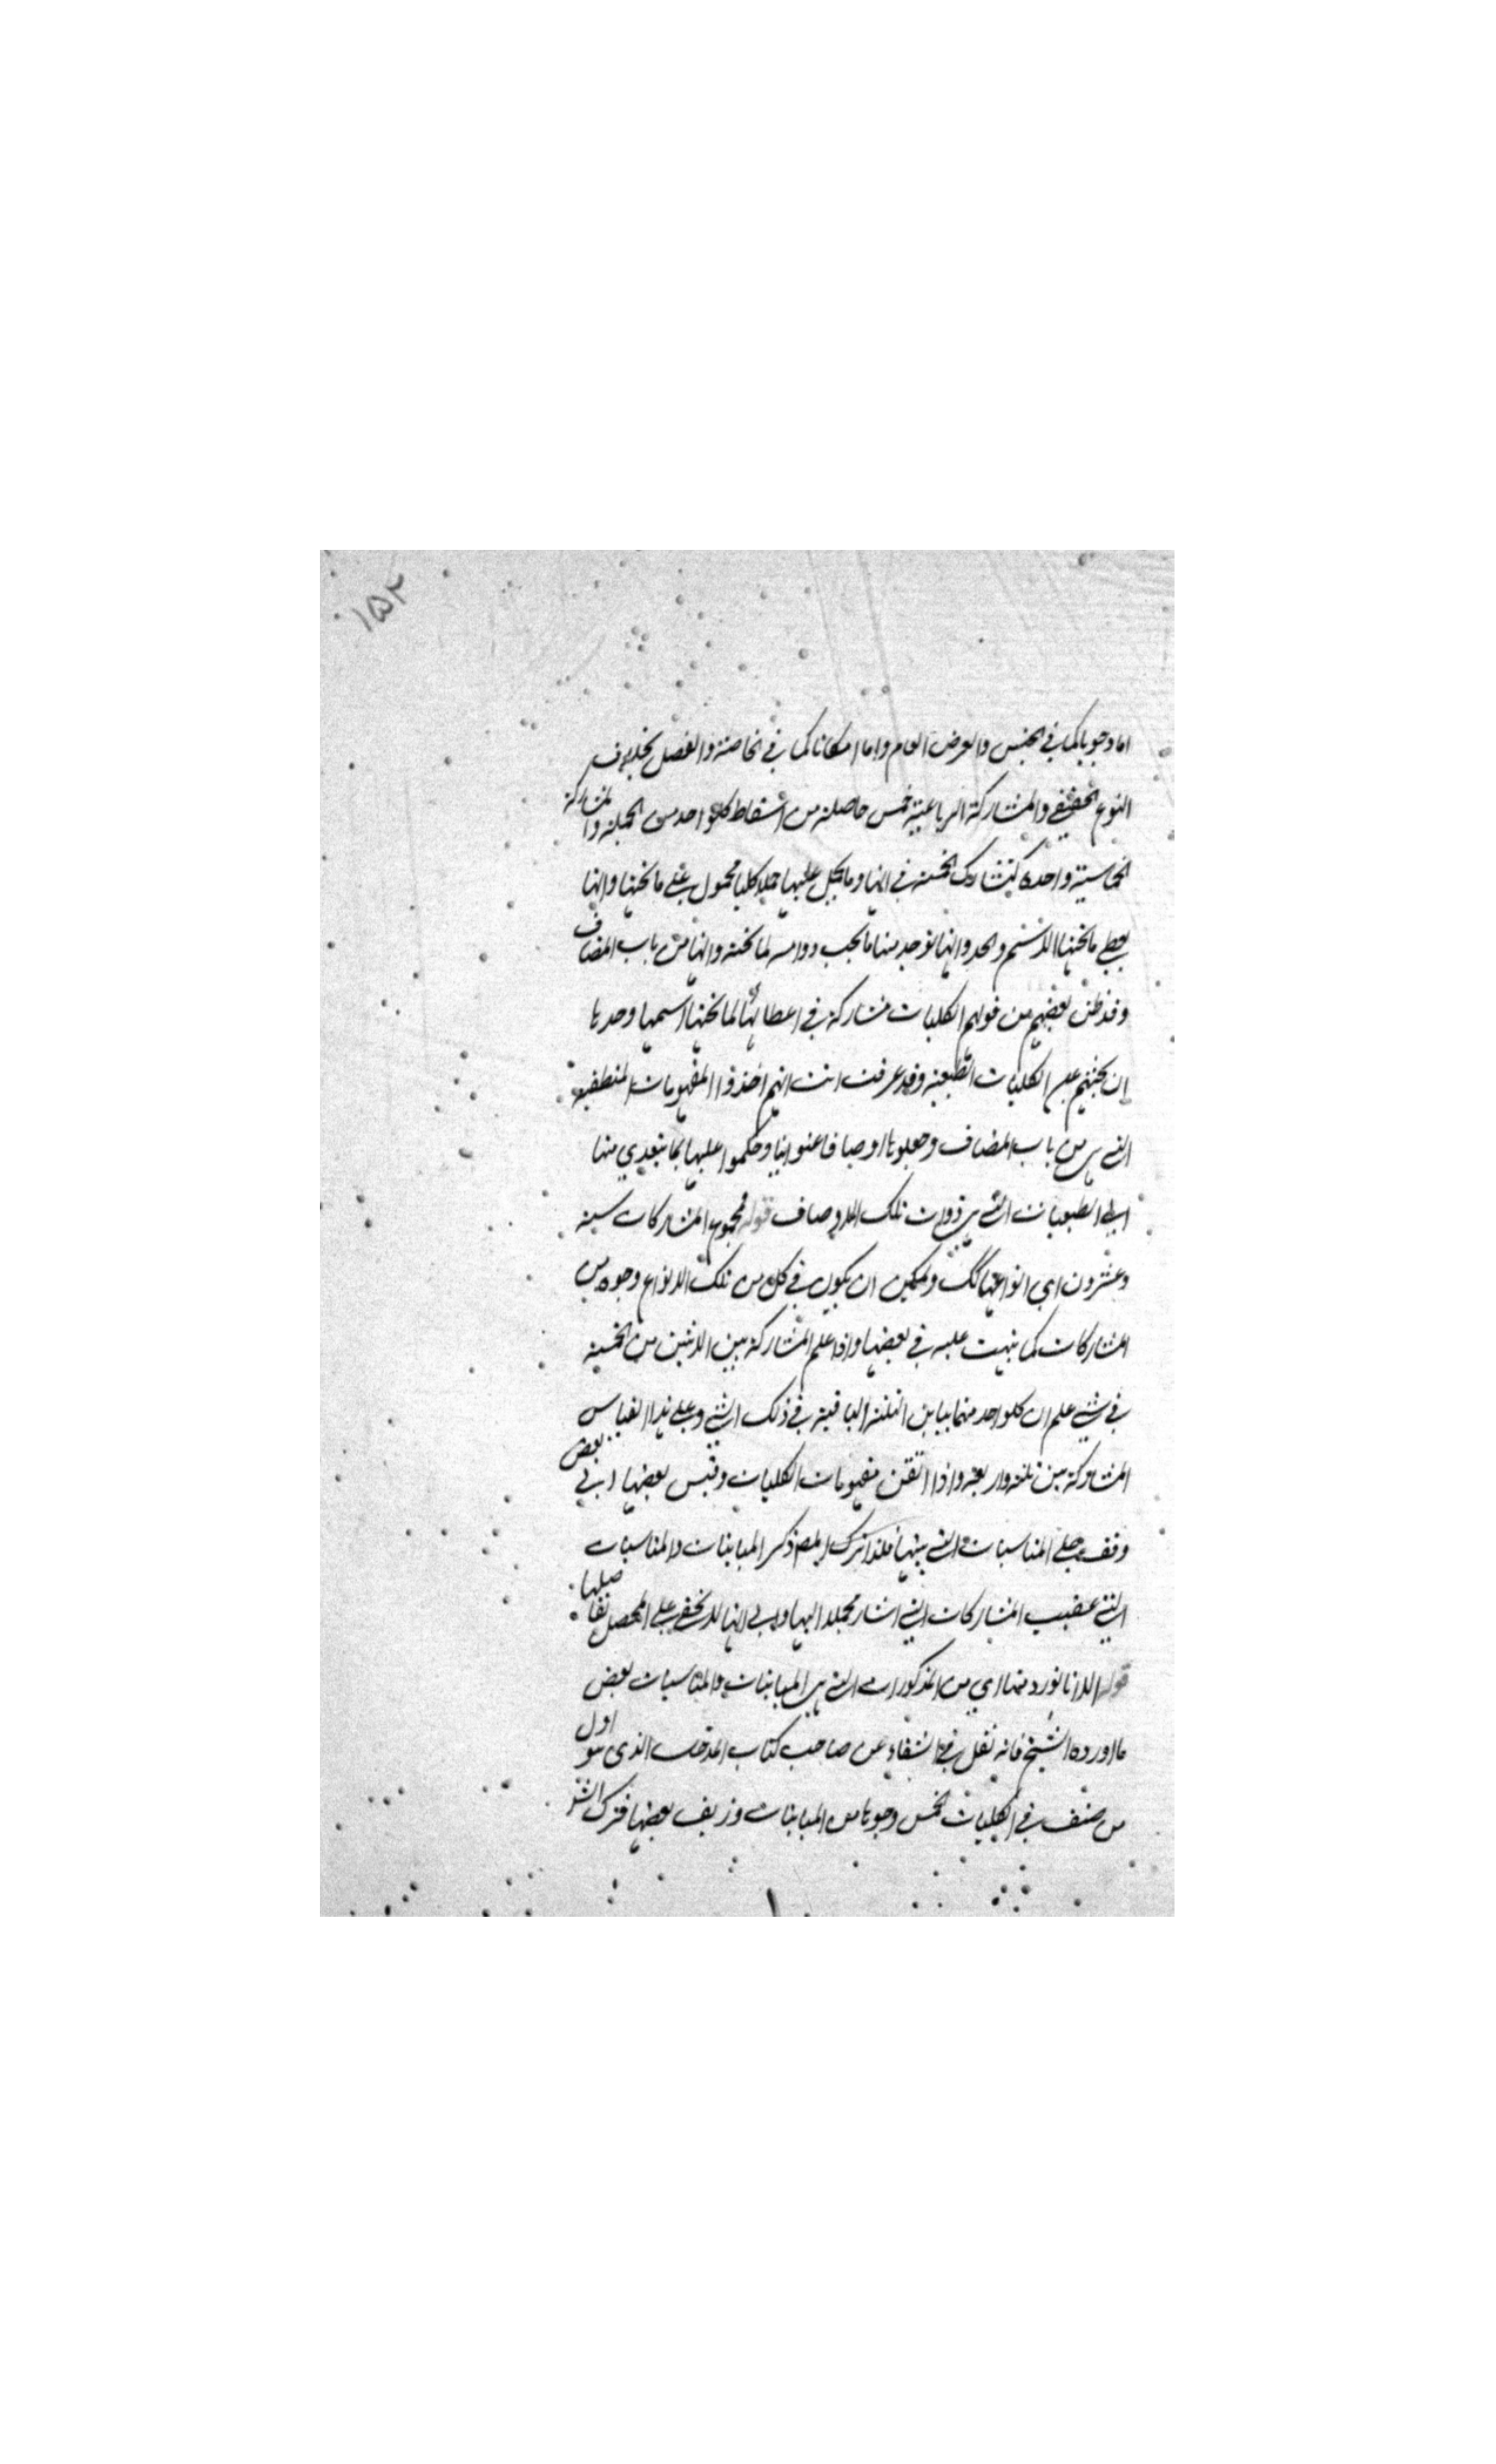 ١٥٢
اما وجوبا كما في الجنس والعرض العام واما امكانا كما في الخاصة والفصل بخلاف
النوع الحقيقي والمشاركة الرباعية خمس حاصلة من اسقاط كل واحد من الجملة والمشاركة
الخماسية واحدة كتشارك الخمسة في انها وما يحمل عليها حملا كليا محمول على ما تحتها وانها
يعطي ما تحتها الاسم والحد وانها توجد منها ما يجب دوامه لما تحته وانها من باب المضاف
وقد ظن بعضهم من قولهم الكليات مشاركة في اعطائها لما تحتها اسمها وحدها
ان بحثهم عن الكليات الطبيعية وقد عرفت انت انهم اخذوا المفهومات المنطقية
التي هي من باب المضاف وجعلوها اوصافا عنوانيا وحكموا عليها بما يتعدي منها
الى الطبيعيات التي هي ذوات تلك الاوصاف قوله مجموع المشاركات ستة
وعشرون اي انواعها كك ويمكن ان يكون في كل من تلك الانواع وجوه من
المشاركات كما نبهت عليه في بعضها واذا علم المشاركة بين الاثنين من الخمسة
في شي علم ان كل واحد منهما يباين الثلثة الباقية في ذلك الشي وعلى هذا القياس
المشاركة بين ثلثة واربعة واذا اتقن مفهومات الكليات وقيس بعضها الى بعض
وقف على المناسبات التي بينها فلذا ترك المص ذكر المباينات والمناسبات
التي عقيب المشاركات التي اشار مجملا اليها والى انها لا يخفى على المحصل تفاصيلها
قوله الا انا نورد منها اي من المذكورات التي هي المباينات والمناسبات بعض
ما اورده الشيخ فانه نقل في الشفاء عن صاحب كتاب المدخل الذي هو اول
من صنف في الكليات الخمس وجوها من المباينات وزيف بعضها فترك